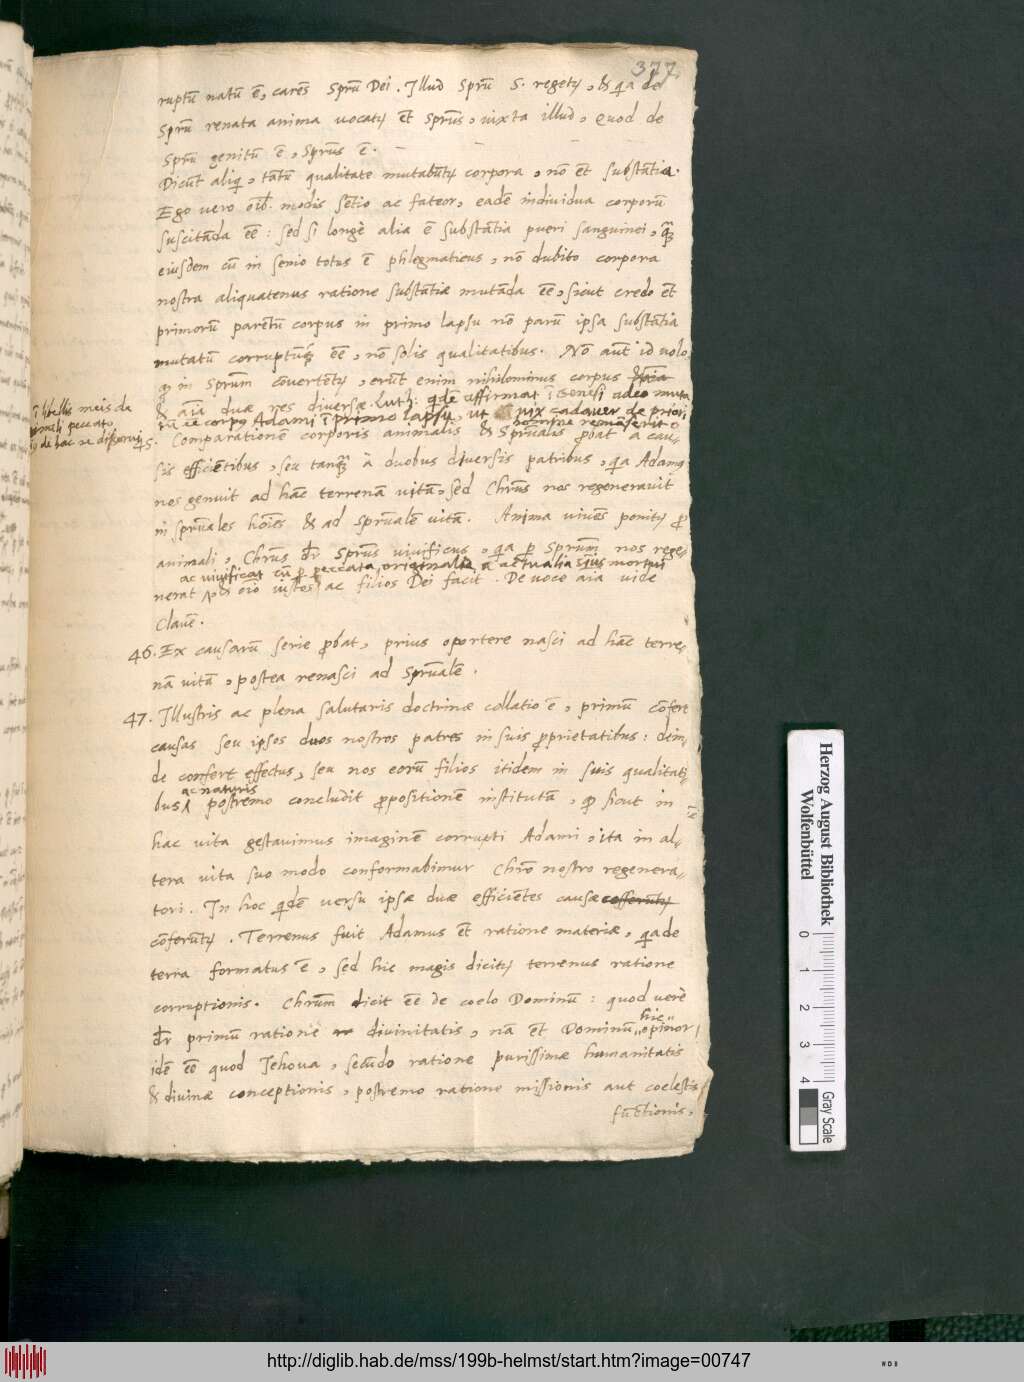 377
ruptū natū ē, carēs Sprū Dei. Illud Sprū S. regetꝛ, & qa de
Sprū renata anima vocatꝛ et Sprūs, iuxta illud, Quod de
Sprū genitū ē, Sprūs ē.
Dicūt aliqi, tātū qualitate mutabūtꝛ corpora, nō et substātia.
Ego vero oīb. modis sētio ac fateor, eadē individua corporū
suscitāda eē: sed si longè alia ē substātia pueri sanguinei, q̄
eiusdem cū in senio totus ē phlegmaticus, nō dubito corpora
nostra aliquatenus ratione substātiæ mutāda eē, sicut credo et
primorū parētū corpus in primo lapsu nō parū ipsa substātia
mutatū corruptūq; eē, nō solis qualitatibus. Nō aūt id volo,
in Sprum cōvertētꝛ, erūt enim nihilominus corpus
& aīa duæ res diversæ. Luth: qdē affirmat ī Genesi adeo muta
tū eē corpꝯ Adami ī primo lapsu, ut vix cadaver de priori
homine remāserit.
ī libellis meis de
peccato
de hac re disserui
45. Comparationē corporis animalis & Sprualis pbat à cau-
sis efficiētibus, seu tanq̄ à duobus diversis patribus, qa Adamꝯ
nos genuit ad hāc terrenā vitā, sed Chrūs nos regeneravit
in sprūales hoīēs & ad sprūalē vitā. Anima vivēs ponitꝛ p
animali, Chrūs dr Sprūs vivificus, qa p Sprum nos rege-
ac vivificat cū p peccata originalia & actualia sīus mortui
nerat, & oīo iustos ac filios Dei facit. De voce aīa vide
Clavē.
46. Ex causarū serie pbat, prius oportere nasci ad hāc terre-
nā vitā, postea renasci ad Sprūalē.
47. Illustris ac plena salutaris doctrinæ collatio ē, primū cōfert
causas seu ipsos duos nostros patres in suis pprietatibus: dein-
de confert effectus, seu nos eorū filios itidem in suis qualitati-
ac naturis
bus, postremo concludit ppositionē institutā, qp sicut in
hac vita gestavimus imaginē corrupti Adami, ita in al-
tera vita suo modo conformabimur Chrō nostro regenera-
tori. In hoc qdē versu ipsæ duæ efficiētes causæ cofferūtꝛ
cōferūtꝛ. Terrenus fuit Adamus et ratione materiæ, qa de
terra formatus ē, sed hic magis dicitꝛ terrenus ratione
corruptionis. Chrūm dicit eē de coelo Dominū: quod verè
dr primū ratione divinitatis, nā et Dominū hic opinor
idē eē quod Iehova, secūdo ratione purissimæ humanitatis
& divinæ conceptionis, postremo ratione missionis aut coelestis
fūctionis,
Herzog August Bibliothek
Wolfenbüttel
0 1 2 3 4
Gray Scale
http://diglib.hab.de/mss/199b-helmst/start.htm?image=00747
WDB